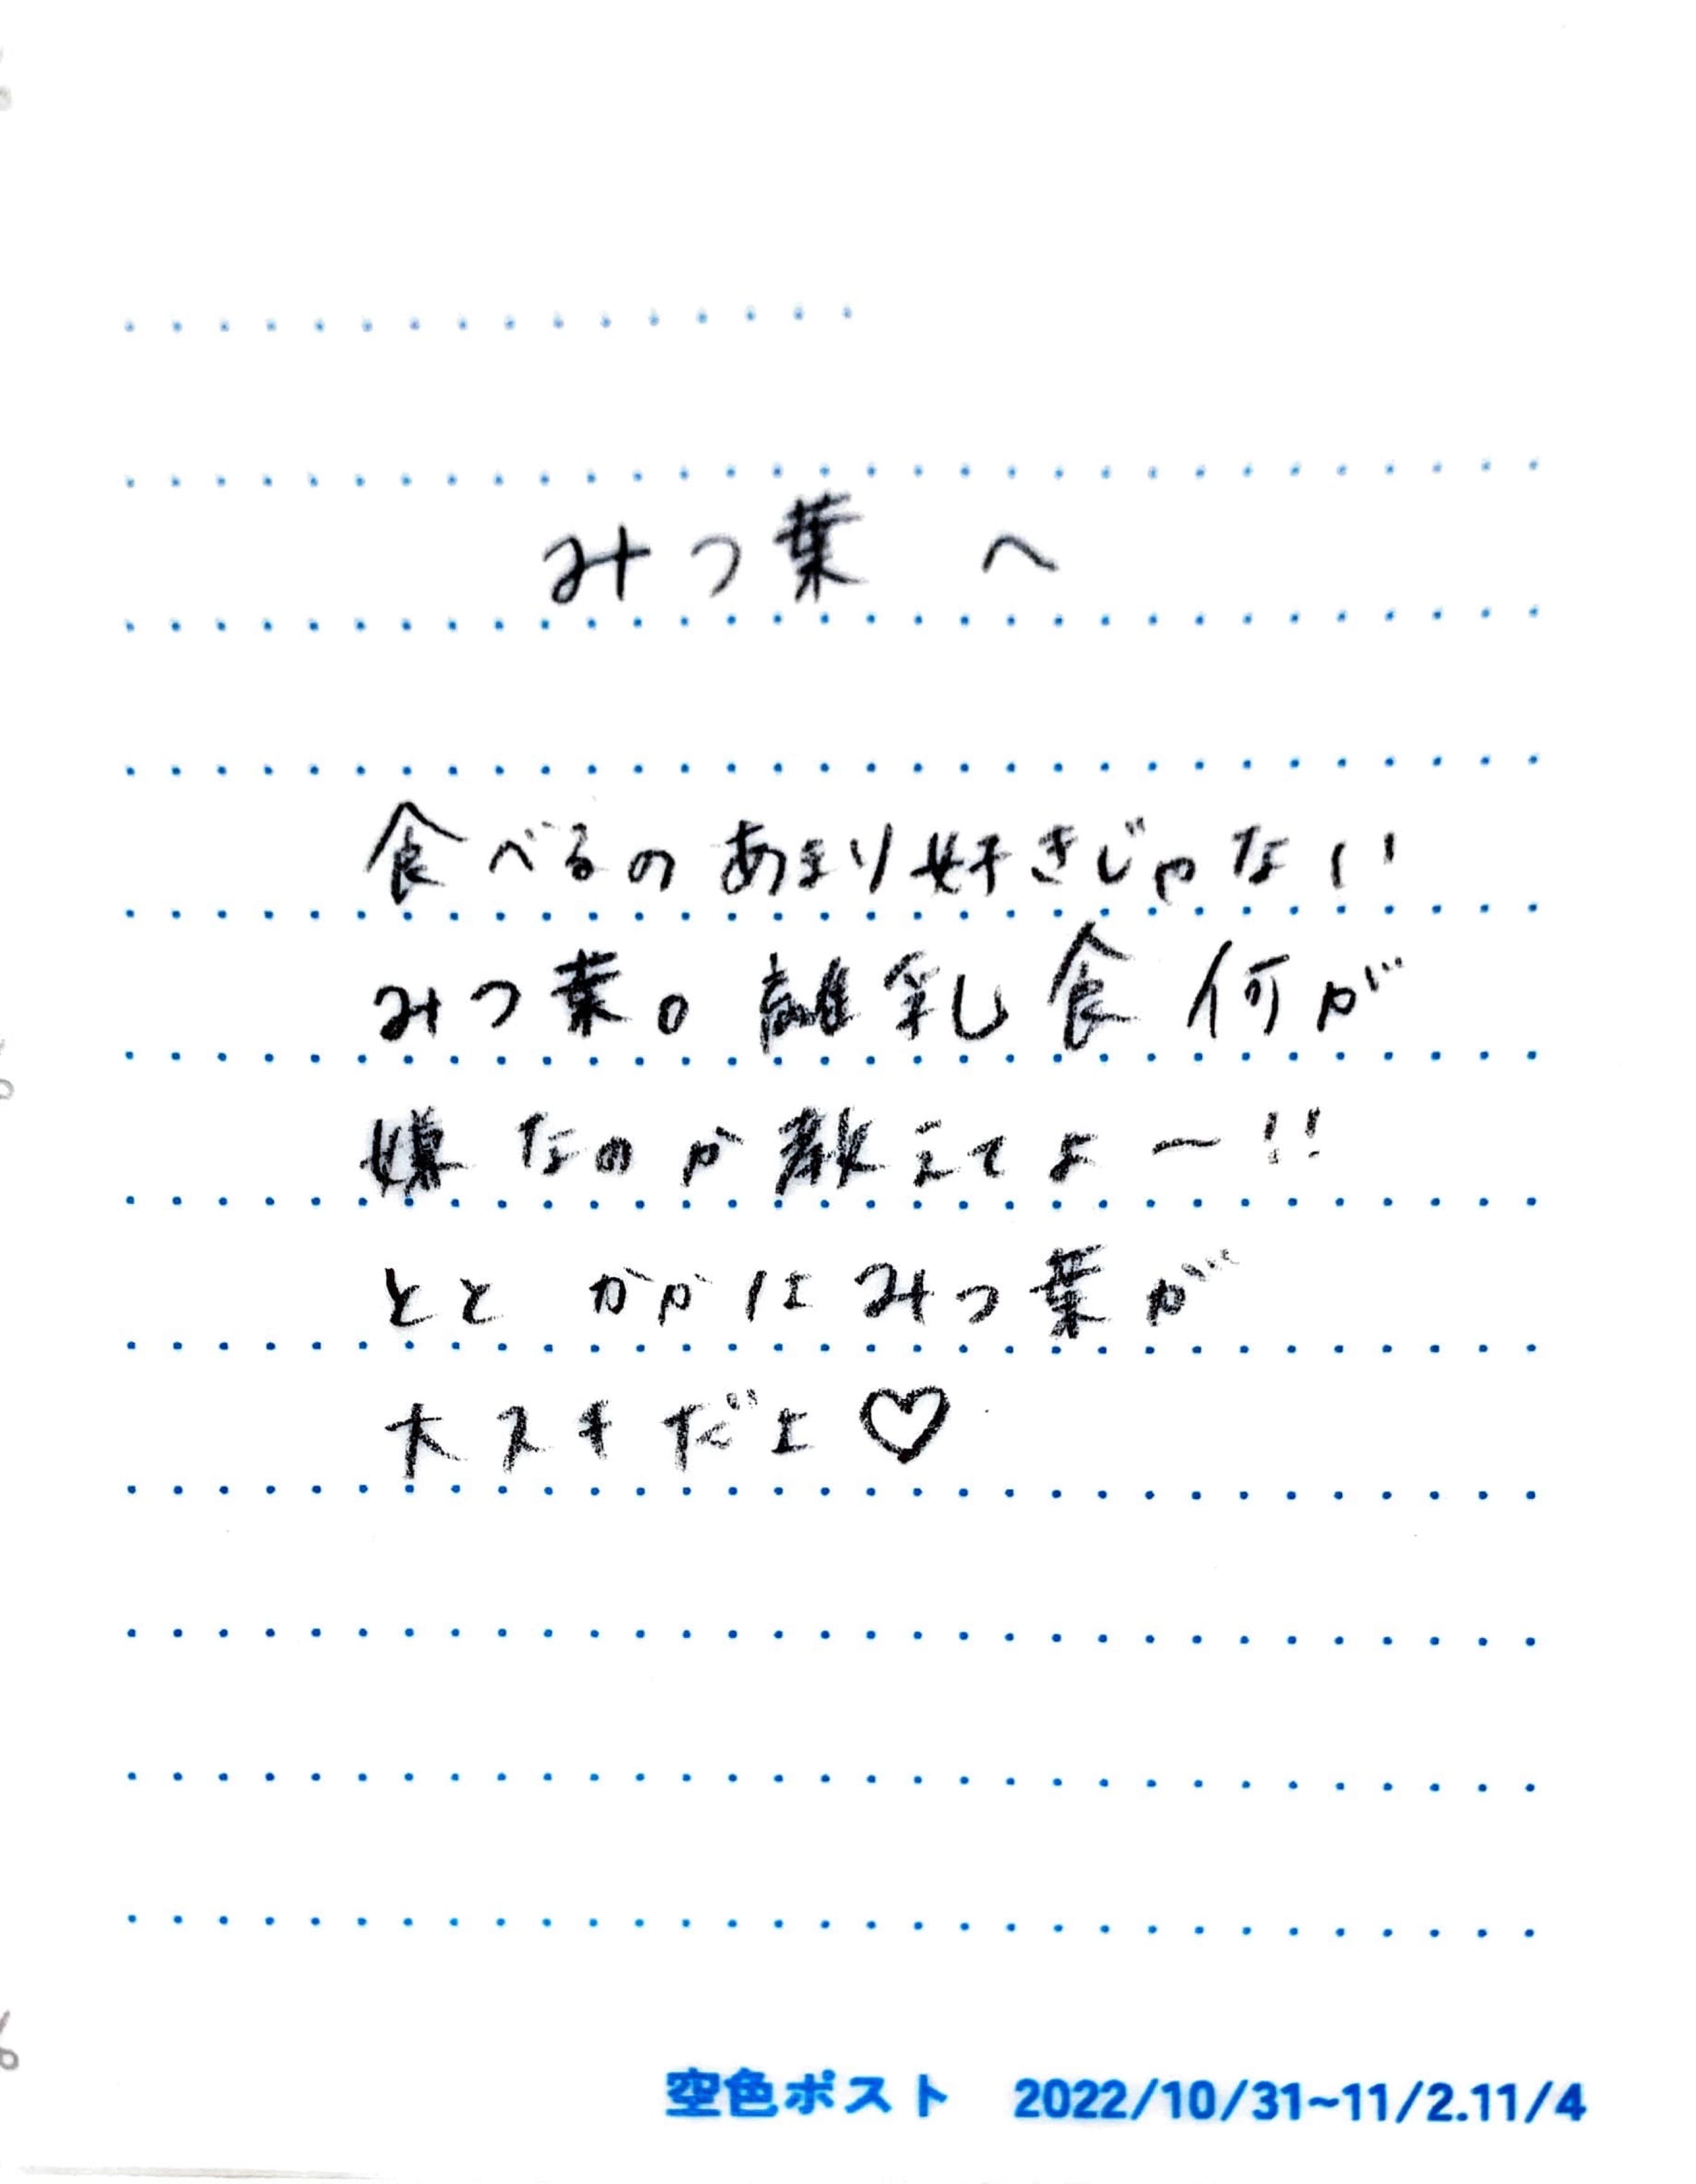 みつ葉 へ
食べるの あまり 好きじゃない
みつ葉。離乳食 何が
嫌なのか教えてよ〜!!
とと かかは みつ葉が
大スキだよ♡
空色ポスト 2022/10/31~11/2.11/4